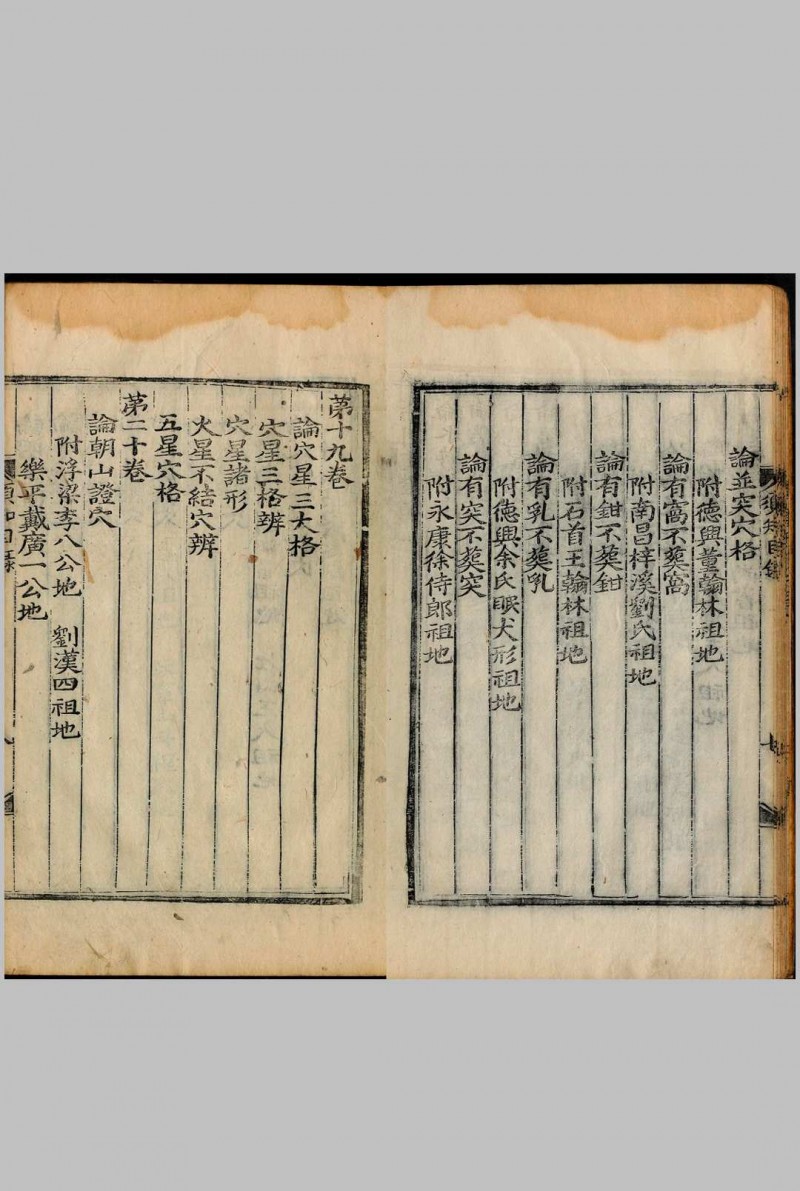 論並突穴格
附德興董翰林祖地
論有窩不葬窩
附南昌梓溪劉氏祖地
論有鉗不葬鉗
附石首王翰林祖地
論有乳不葬乳
附德興余氏眠犬形祖地
論有突不葬突
附永康徐侍郎祖地
第十九卷
論穴星三大格
穴星三格辨
穴星諸形
火星不結穴辨
五星穴格
第二十卷
論朝山證穴
附浮梁李八公地　劉漢四祖地
樂平戴廣一公地